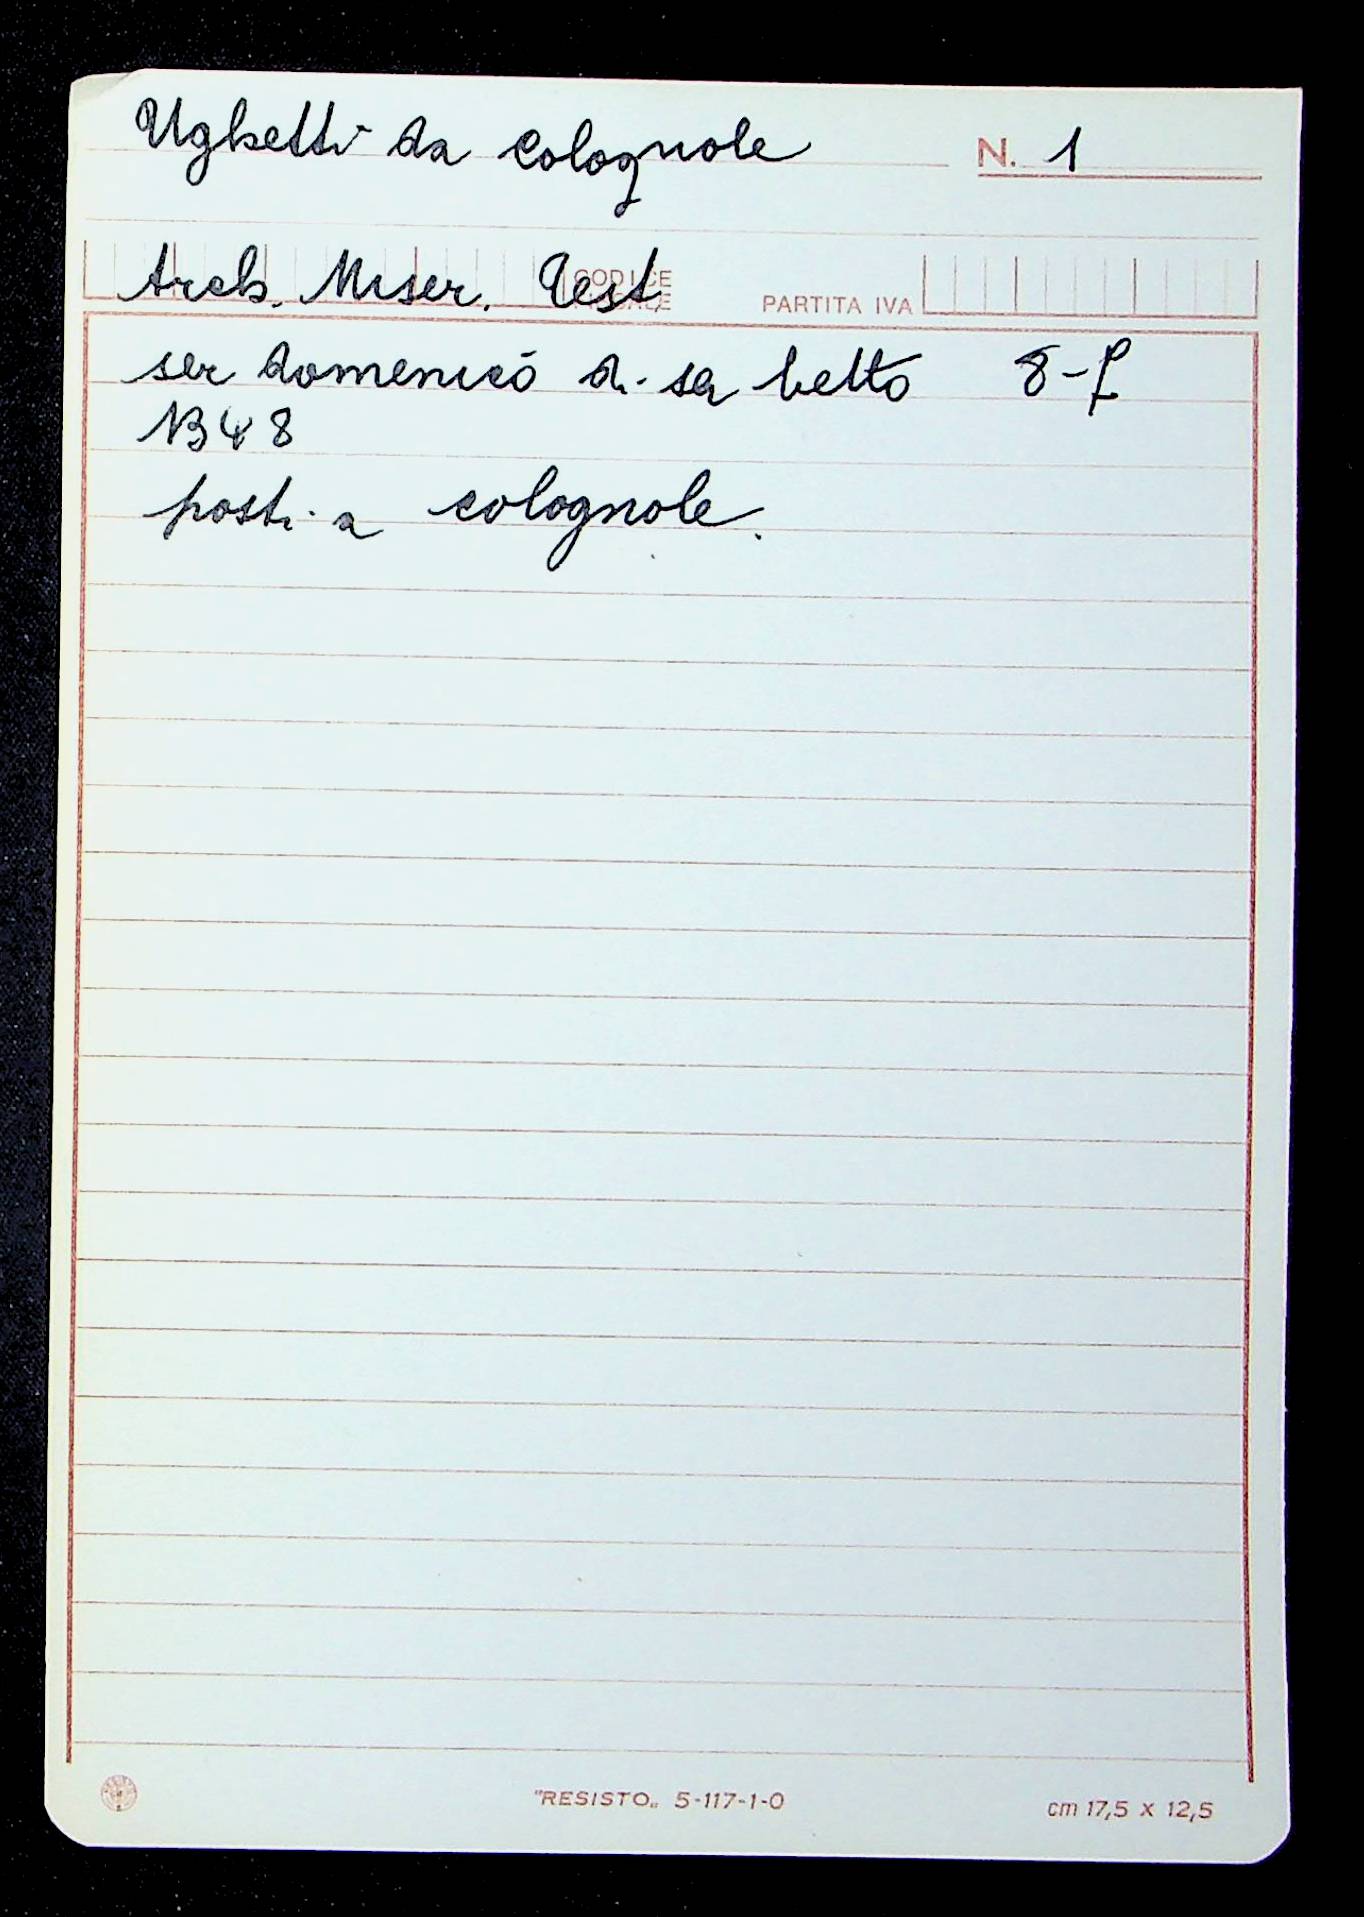 Ughetti da Colognole N. 1
Arch. Miser. Test.
CODICE FISCALE PARTITA IVA
ser domenico di ser betto 8-f
1348
posti a colognole.
"RESISTO„ 5-117-1-0 cm 17,5 x 12,5